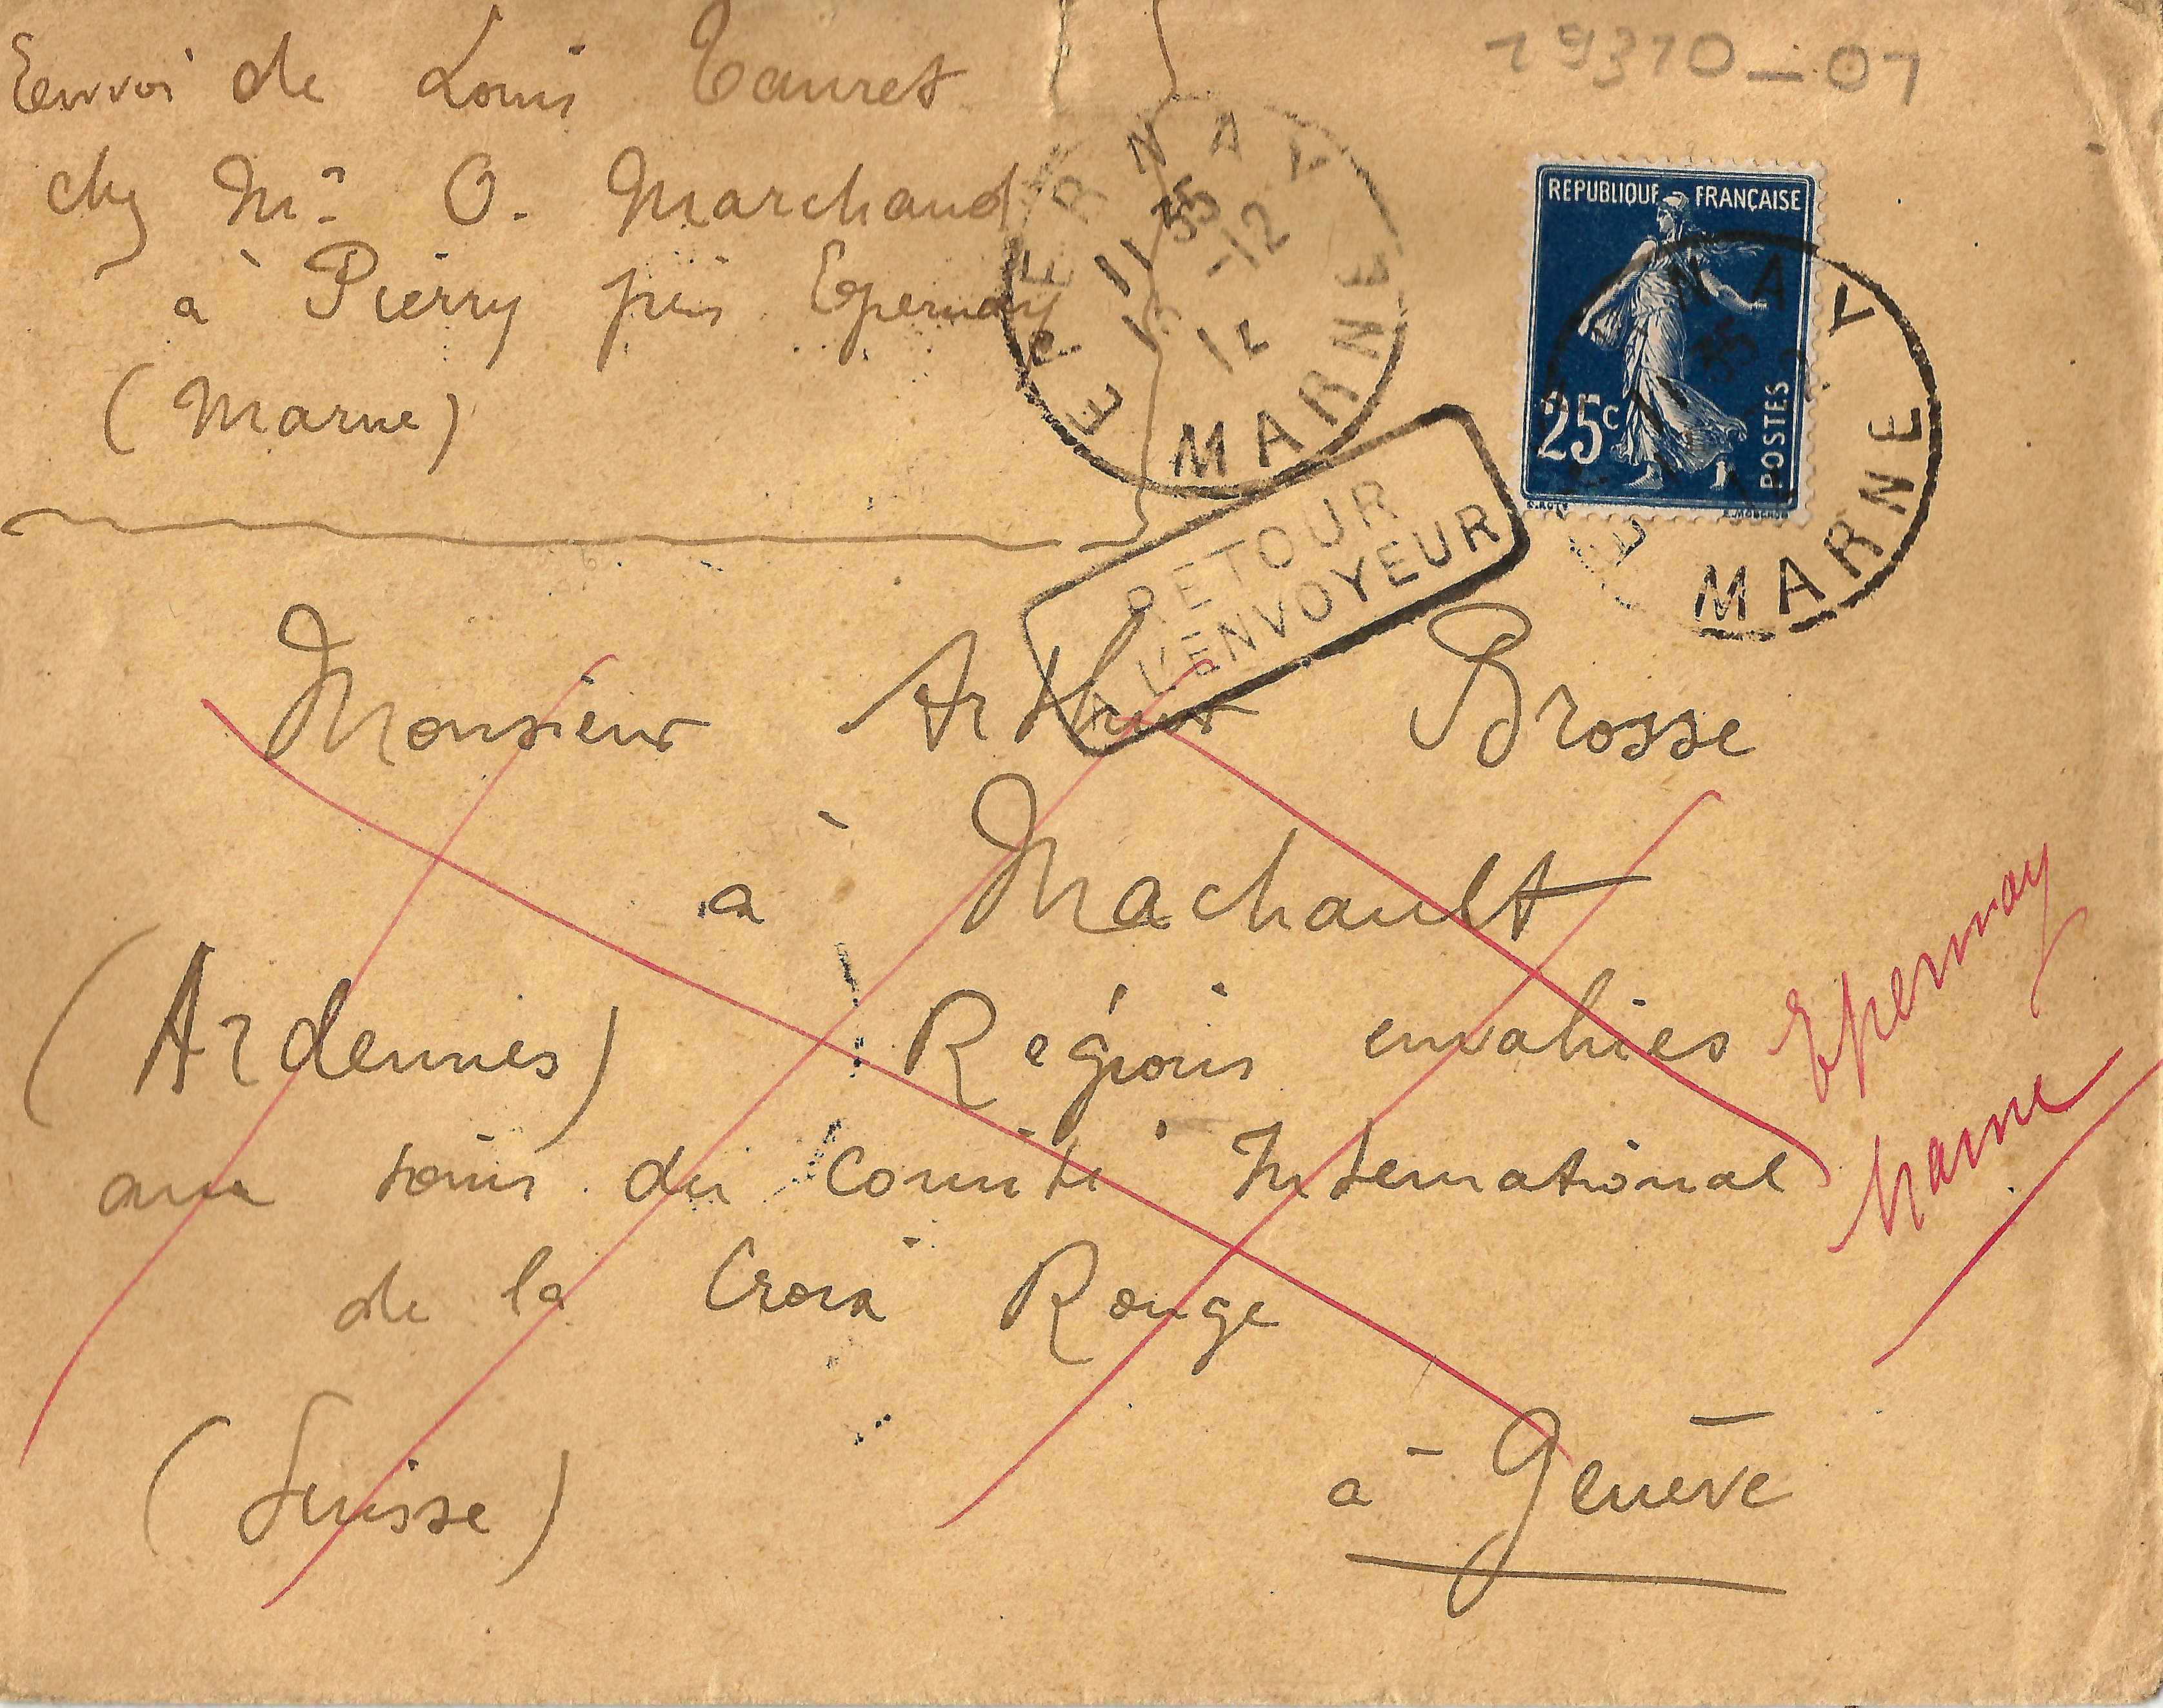 Envoi de Louis Tauret
chez Mr O. Marchand
à Pierry près Epernay
(Marne)
19310_01
EPERNAY
11 35
-12
MARNE
REPUBLIQUE FRANÇAISE
25c
POSTES
NAY
35
MARNE
RETOUR
A L'ENVOYEUR
Monsieur Arthur Brosse
à Machault
(Ardennes) Régions envahies
aux soins du Comité International
de la Croix Rouge
(Suisse) à Genève
Epernay
Marne